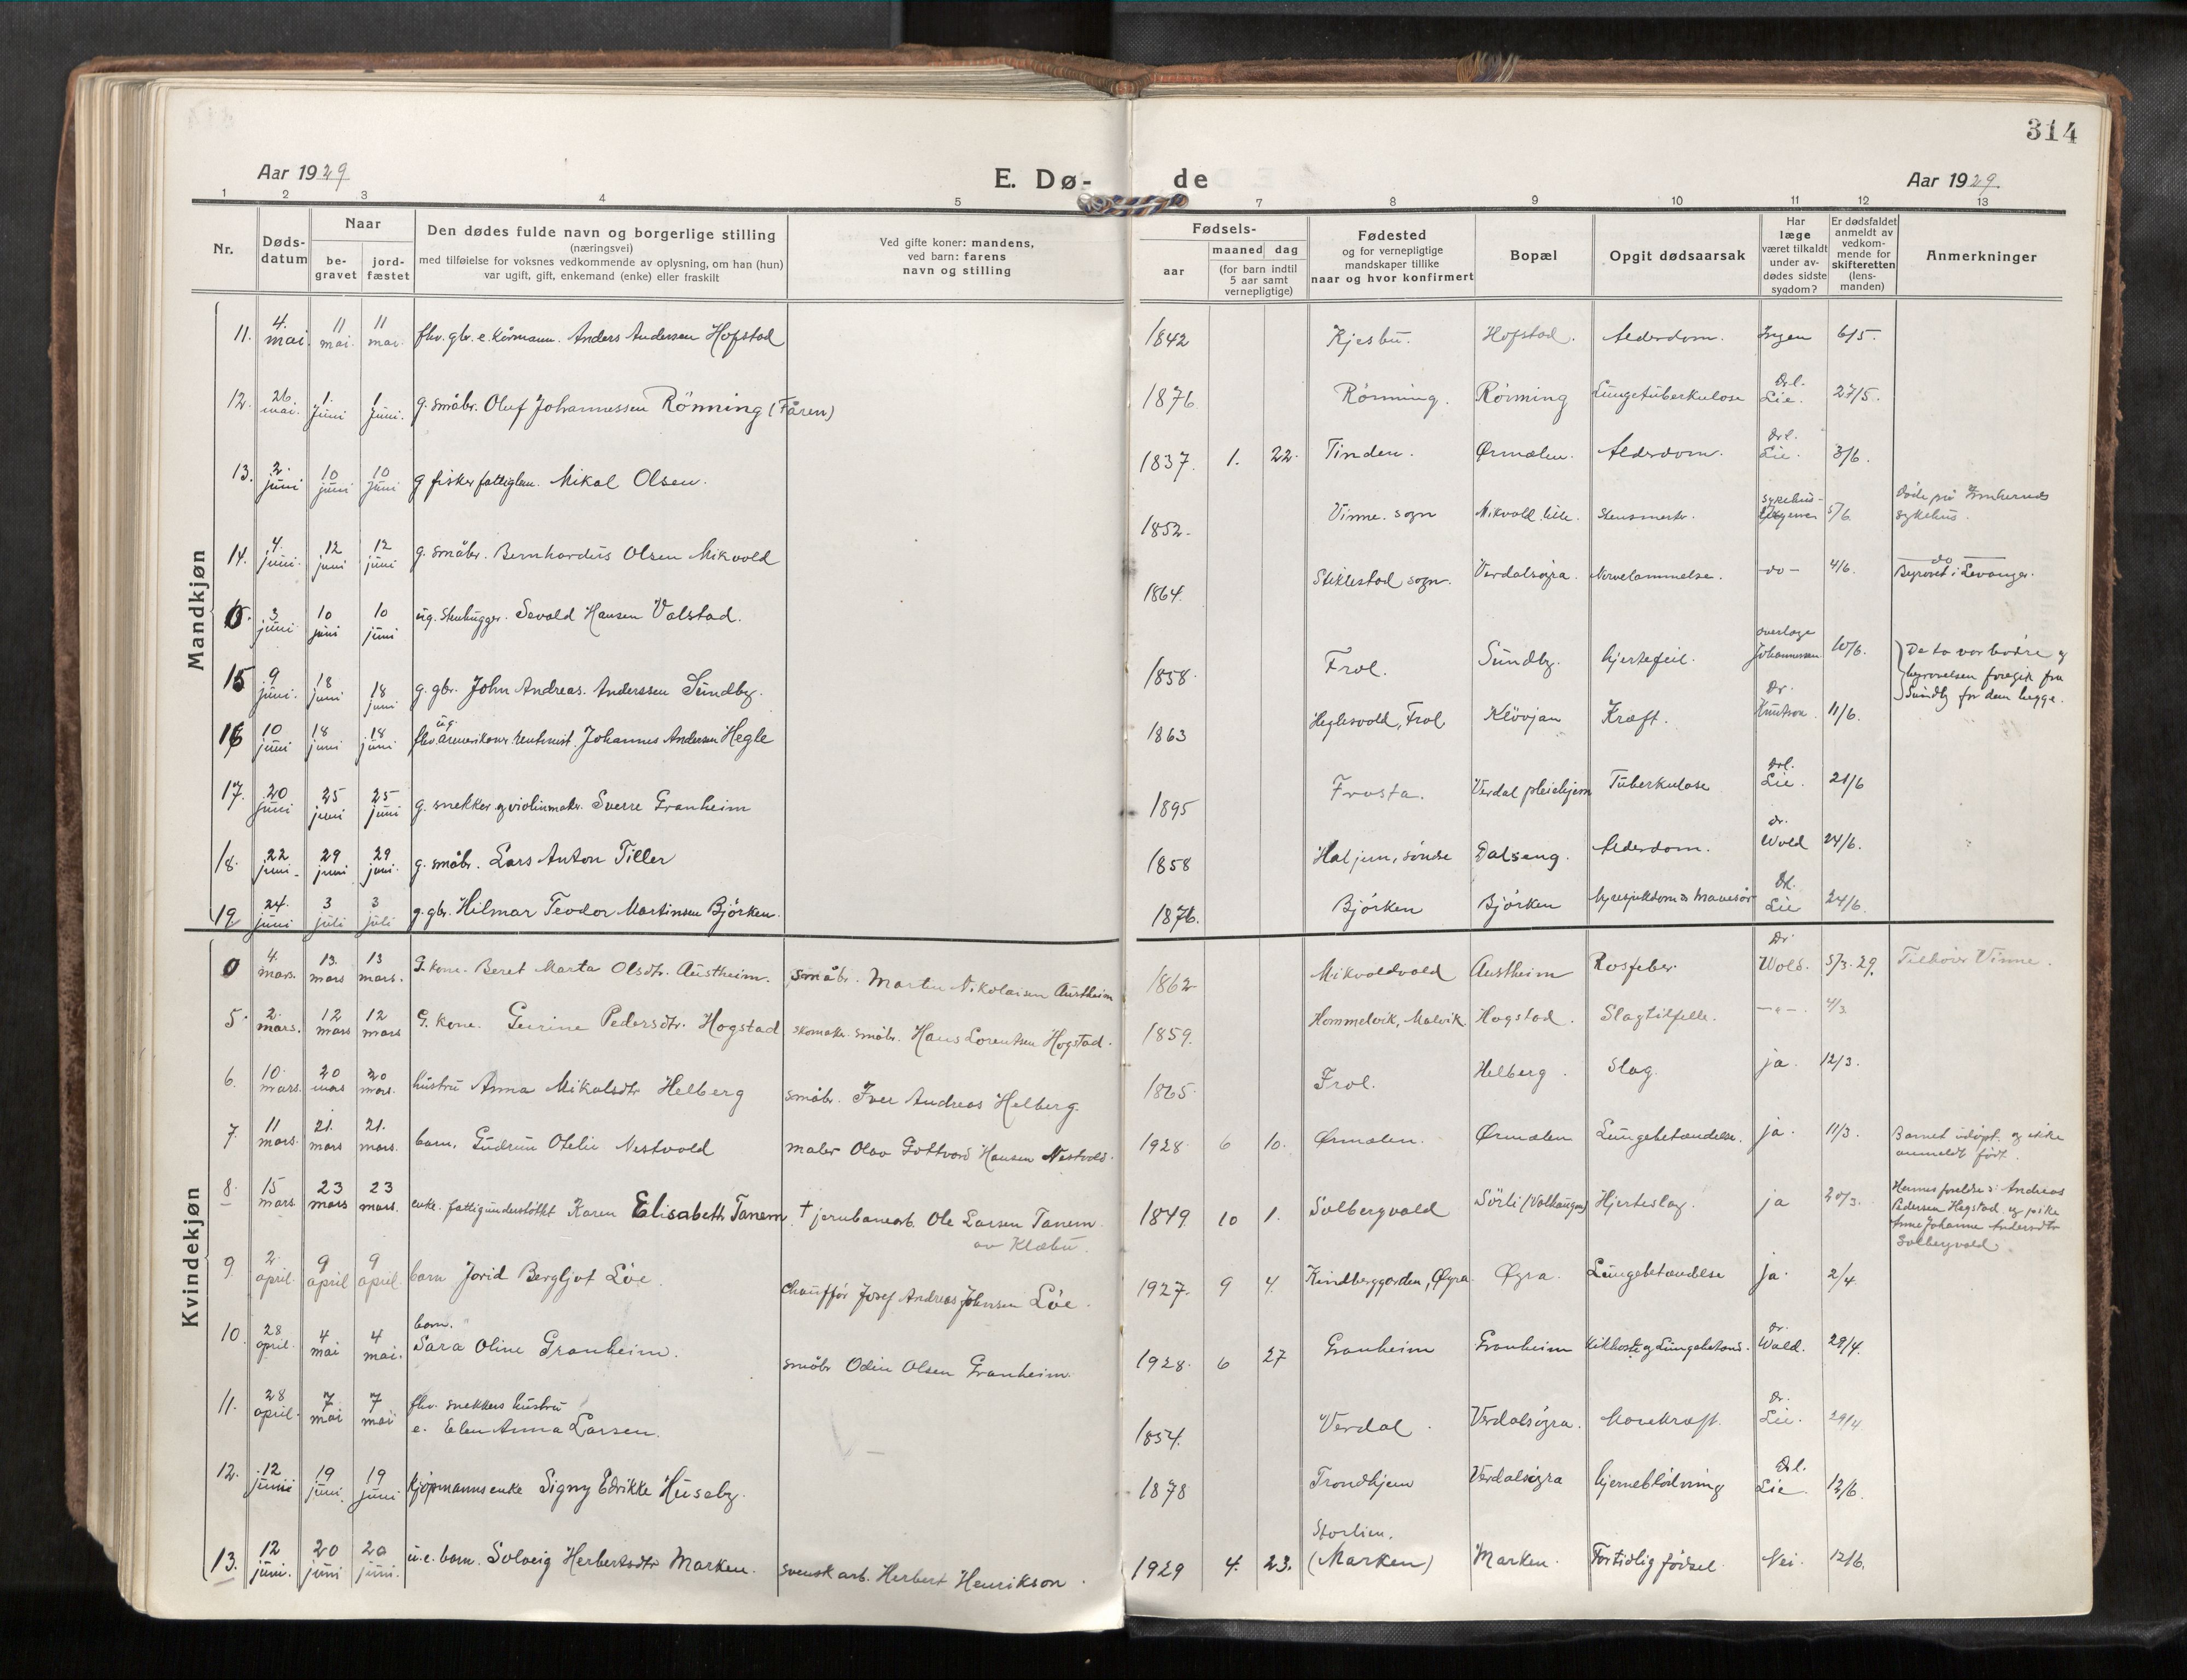 314
Aar 1929
E. Dø-
de
Aar 1929.
1 2 3 4 5 7 8 9 10 11 12 13
Nr.
Døds-
datum
Naar
be-
gravet
jord-
fæstet
Den dødes fulde navn og borgerlige stilling
(næringsvei)
med tilføielse for voksnes vedkommende av oplysning, om han (hun)
var ugift, gift, enkemand (enke) eller fraskilt
Ved gifte koner: mandens,
ved barn: farens
navn og stilling
Fødsels-
aar
maaned dag
(for barn indtil
5 aar samt
vernepligtige)
Fødested
og for vernepligtige
mandskaper tillike
naar og hvor konfirmert
Bopæl
Opgit dødsaarsak
Har
læge
været tilkaldt
under av-
dødes sidste
sygdom?
Er dødsfaldet
anmeldt av
vedkom-
mende for
skifteretten
(lens-
manden)
Anmerkninger
Mandkjøn
11. 4. mai 11 mai. 11 mai. fhv. gbr. e. Kårmann. Anders Andersen Hofstad 1842 Kjesbu. Hofstad. Alderdom. Ingen 6/5.
12. 26. mai. 1. juni 1 juni. g. småbr. Oluf Johannessen Rönning (Fåren) 1876 Rönning. Rönning Lungetuberkulose Drl. Lie. 27/5.
13. 2. juni 10 juni 10 juni g fisker fattiglem. Mikal Olsen. 1837. 1. 22. Tinden. Ørmelen. Alderdom. Drl. Lie. 3/6.
14. 4. juni. 12 juni 12 juni g. småbr. Bernhardus Olsen Mikvold 1852. Vinne. sogn Mikvold lille. 5/6 Døde på Innherreds
sykehus.
0. 3 juni 10 juni 10 juni ug. Stenhugger. Sevald Hansen Valstad. 1864. Stiklestad sogn. Verdalsøra. Nervelammelse. -do- 4/6. do
Begravet i Levanger.
15 9 juni. 18 juni 18 juni g. gbr. John Andreas. Anderssen Sundby. 1858. Frol. Sundby. hjertefeil. overlæge Johannessen 10/6. De to var brødre og
begravelsen foregik fra
Sundby for dem begge.
16 10 juni 18 juni 18 juni ug. fhv. Amerikaner rentenist. Johannes Andersen Hegle 1863 Heglesvold, Frol Klövjan Kræft. Dr. Knutson. 11/6.
17. 20 juni 25 juni 25 juni g. snekker og violinmaker. Sverre Granheim 1895 Frosta. Verdal pleiehjem Tuberkulose Drl. Lie. 21/6
18. 22 juni. 29 juni 29 juni. g. småbr. Lars Anton Tiller 1858 Haljem, søndre Dalseng. Alderdom. Dr. Wold 24/6.
19 24. juni 3 juli 3 juli g. gbr. Hilmar Teodor Martinsen Björken. 1876. Björken Björken Drl. Lie 24/6.
Kvindekjøn
0 4. mars. 13. mars 13 mars. G. kone. Beret Marta Olsdtr. Austheim. Småbr. Martin Nikolaisen Austheim 1862 Mikvoldvald Austheim Rosfeber Dr. Wold. 5/3.29. Tilhører Vinne.
5. 2. mars. 12 mars 12 mars G. kone. Gurine Pedersdtr. Hogstad skomaker. småbr. Hans Lorentsen Hogstad. 1859. Hommelvik, Malvik. Hogstad. Slagtilfelle. -"-. 4/3
6. 10. mars. 20 mars 20 mars. hustru Anna Mikalsdtr Helberg småbr. Iver Andreas Helberg. 1865. Frol. Helberg. Slag. ja. 12/3.
7. 11 mars. 21. mars 21. mars. barn. Gudrun Otelie Nestvold maler Olav Gottvard Hansen Nestvold. 1928. 6 10. Ørmelen. Ørmelen Lungebetændelse. ja. 11/3. Barnet udøpt. og ikke
anmeldt født.
8. 15 mars 23 mars 23 mars. enke. fattigunderstøttet Karen Elisabeth Tanem † jernbanearb. Ole Larsen Tanem.
av Klæbu. 1849. 10 1. Solbergvald Sörli (Valhaugen) Hjerteslag. ja 20/3. Hennes foreldre: Andreas
Pedersen Hegstad og pike
Anne Johanne Andersdtr
Solbergvald
9. 2. april. 9 april 9 april. barn Jorid Bergljot Löe. Chauffør Josef Andreas Johnsen Löe. 1927. 9 4. Kindberggarden, Øyra. Øyra. Lungebetændelse ja. 2/4.
10. 28 april. 4 mai 4 mai. barn. Sara Oline Granheim. småbr Odin Olsen Granheim. 1928. 6 27 Granheim Granheim Kikhoste og Lungebetænd. Dr. Wold. 29/4.
11. 28 april. 7 mai 7 mai fhv. snekkers hustru
e. Elen Anna Larsen. 1854. Verdal. Verdalsøra. Mavekræft. Dr. Lie. 29/4
12. 12 juni 19 juni. 19 juni kjøpmanns enke Signy Edrikke Huseby. 1878 Trondhjem Verdalsøra hjerneblødning Drl. Lie. 12/6.
13. 12 juni. 20 juni 20 juni. u.e. barn. Solveig Herbertsdtr Marken. svensk arb. Herbert Henrikson. 1929 4. 23. Storlien.
(Marken) Marken. Fortidlig fødsel. Nei. 12/6.